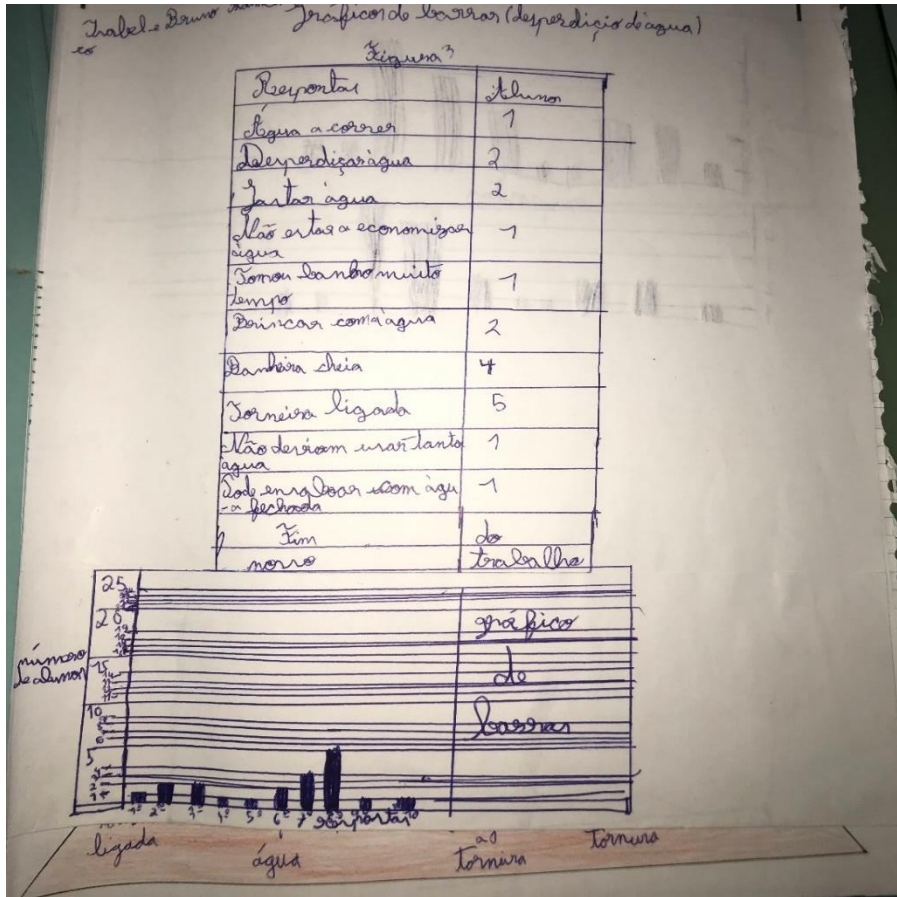 Isabel e Bruno
Gráficos de barras (desperdício de água)
Figura 3
Respostas Alunos
Água a correr 1
Desperdiçar água 2
Gastar água 2
Não estar a economizar
água 1
Tomou banho muito
tempo 1
Brincar com a água 2
Banheira cheia 4
Torneira ligada 5
Não deviam usar tanta
água 1
Pode ensaboar com águ
-a fechada 1
Fim do
nosso trabalho
gráfico
de
barras
número
de alunos
25
20
15
10
5
1º 2º 3º 4º 5º 6º 7º 8º 9º 10
respostas
ligada água ao
tornura tornura